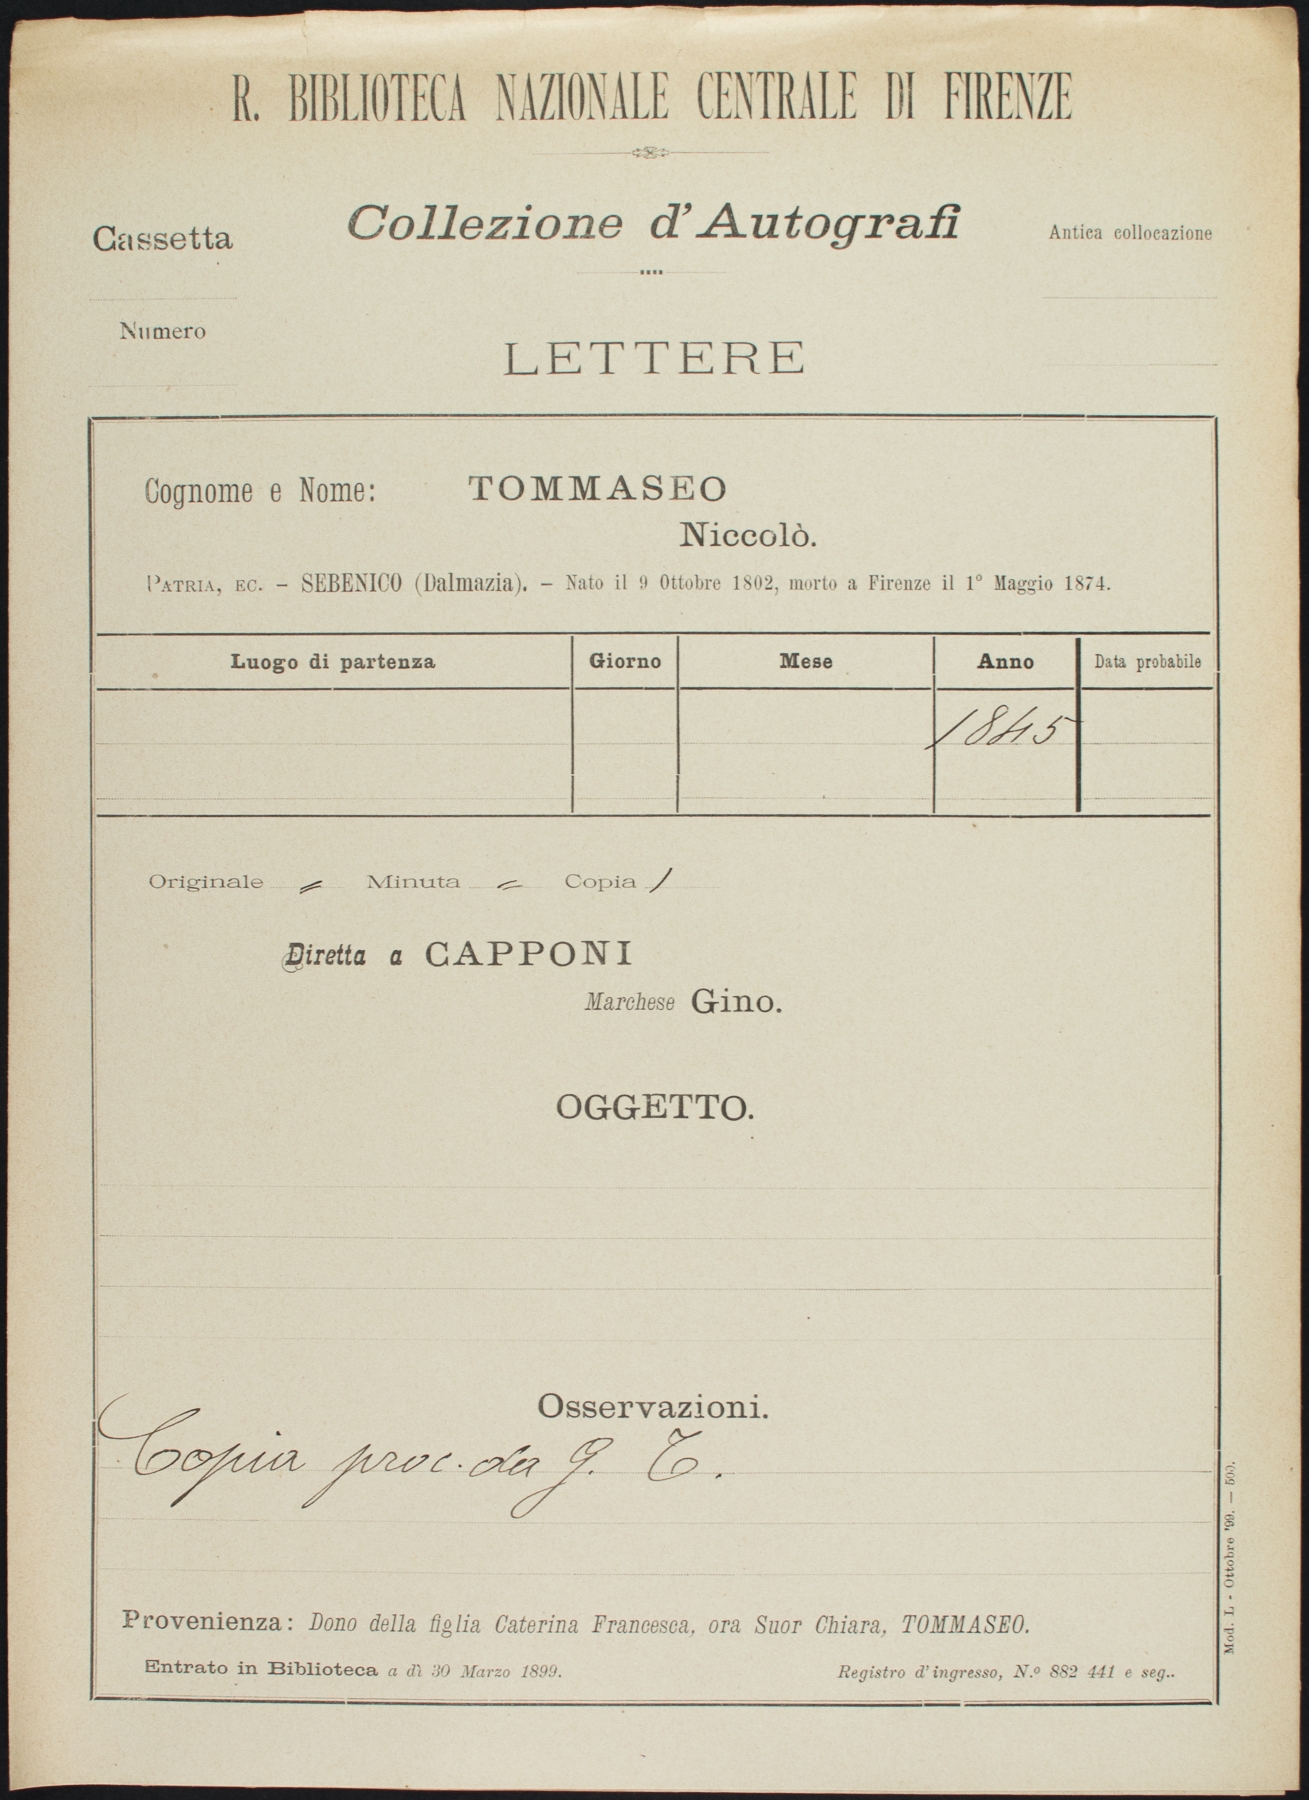 R. BIBLIOTECA NAZIONALE CENTRALE DI FIRENZE
Cassetta
Collezione d'Autografi
Antica collocazione
Numero
LETTERE
Cognome e Nome: TOMMASEO
Niccolò.
PATRIA, EC. – SEBENICO (Dalmazia). – Nato il 9 Ottobre 1802, morto a Firenze il 1° Maggio 1874.
Luogo di partenza Giorno Mese Anno Data probabile
1845
Originale = Minuta = Copia 1
Diretta a CAPPONI
Marchese Gino.
OGGETTO.
Osservazioni.
Copia proc. da G. T.
Provenienza: Dono della figlia Caterina Francesca, ora Suor Chiara, TOMMASEO.
Entrato in Biblioteca a dì 30 Marzo 1899.
Registro d'ingresso, N.º 882 441 e seg..
Mod. L - Ottobre '99. — 500.